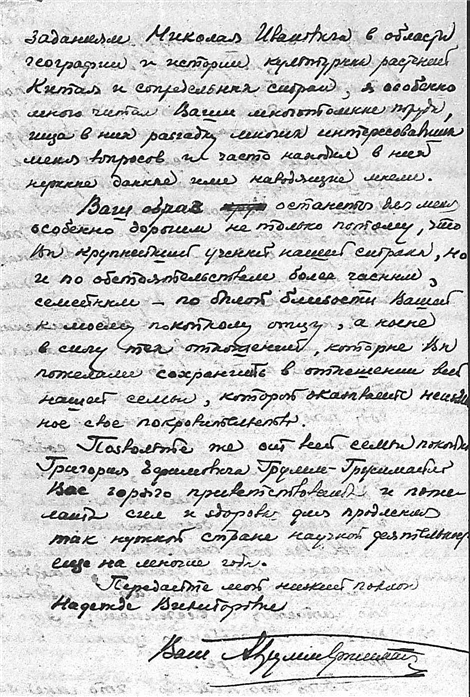 заданиям Николая Ивановича в области
географии и истории культурных растений
Китая и сопредельных стран, я особенно
много читал Ваши многотомные труды,
ища в них разгадку многих интересовавших
меня вопросов и часто находил в них
нужные данные или наводящие мысли.
Ваш образ останется для меня
особенно дорогим не только потому, что
Вы крупнейший ученый нашей страны, но
и по обстоятельствам более частным,
семейным – по былой близости Вашей
к моему покойному отцу, а ныне
в силу тех отношений, которые Вы
пожелали сохранить в отношении всей
нашей семьи, которой оказываете
ное свое покровительство.
Позвольте же от всей семьи покойного
Григория Ефимовича Грумм-Гржимайло
Вас горячо приветствовать и поже-
лать сил и здоровья для продления
так нужной стране научной деятельнос
еще на многие годы.
Передайте мой низкий поклон
Надежде Викторовне
Ваш А Грумм Гржимайло